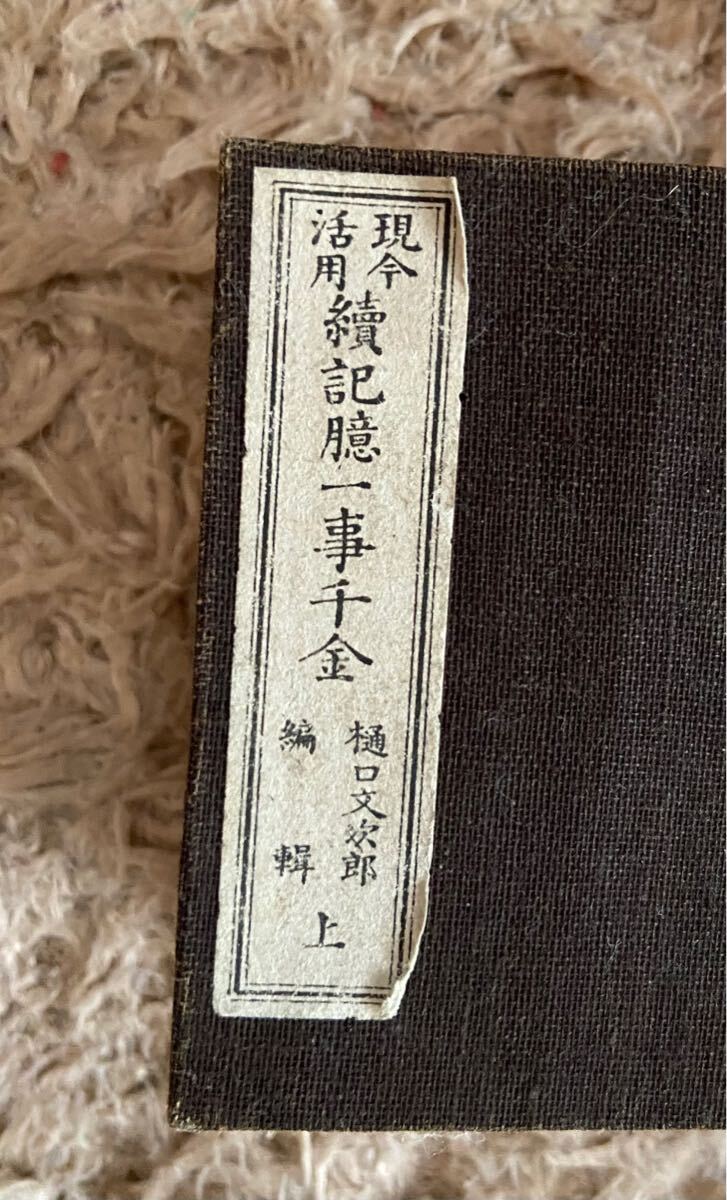 現今
活用
續記臆一事千金
樋口文次郎
編輯
上